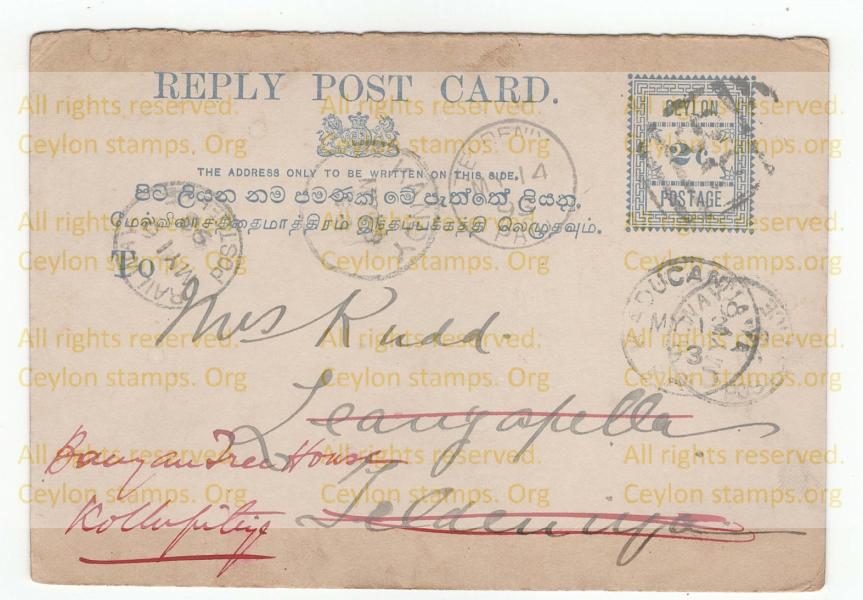 REPLY POST CARD.
CEYLON
2c
POSTAGE
THE ADDRESS ONLY TO BE WRITTEN ON THIS SIDE.
පිට ලියන නම පමණක් මේ පැත්තේ ලියනු.
மேல்விலாசத்தைமாத்திரம் இந்தப்பக்கத்தி லெழுதவும்.
To
KANDY
MY 14
PAID
MY 11
POST
MY 12
93
Mrs Rudd.
Leangapella
Teldeniya
Banyan Tree House
Kollupitiya
All rights reserved. All rights reserved. All rights reserved.
Ceylon stamps. Org Ceylon stamps. Org Ceylon stamps. Org
All rights reserved. All rights reserved. All rights reserved.
Ceylon stamps. Org Ceylon stamps. Org Ceylon stamps. Org
All rights reserved. All rights reserved. All rights reserved.
Ceylon stamps. Org Ceylon stamps. Org Ceylon stamps. Org
All rights reserved. All rights reserved. All rights reserved.
Ceylon stamps. Org Ceylon stamps. Org Ceylon stamps. Org